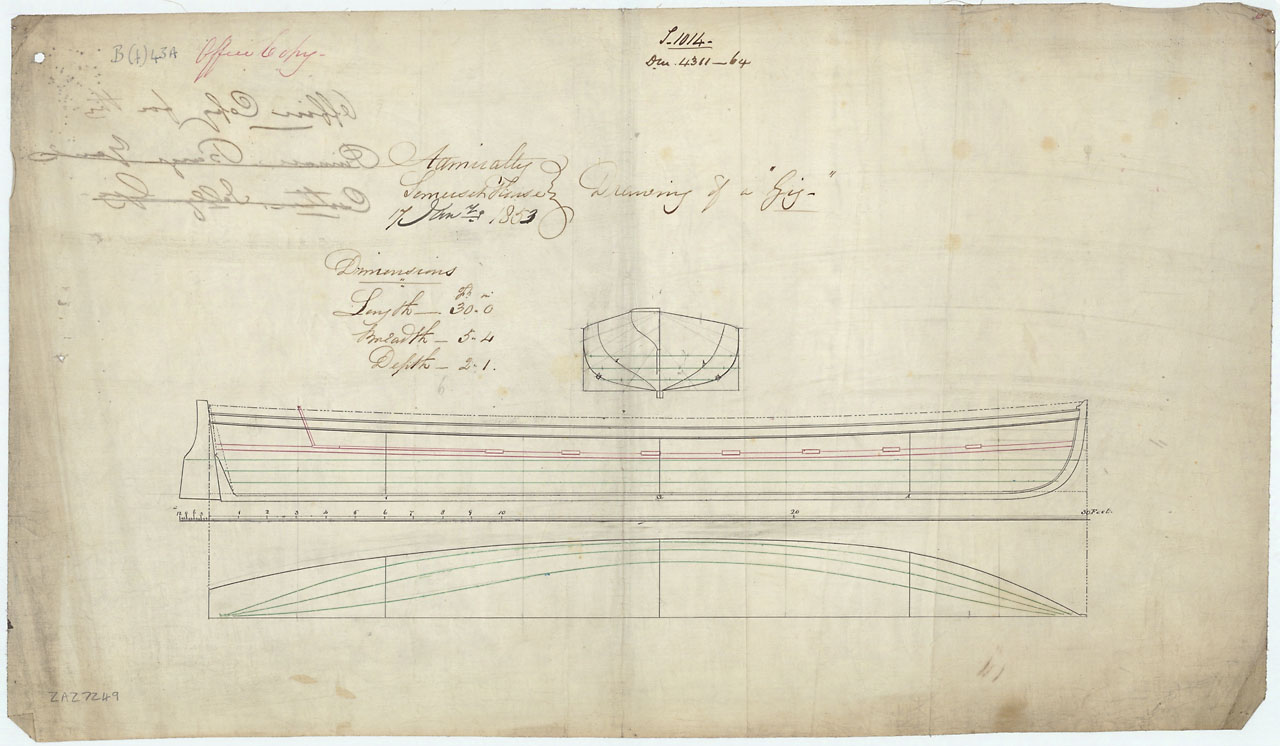 B(f)43A Office Copy.
J-1014-
Dm. 4311-64
Office Copy for the
Admiralty
Somerset House
17 Jany. 1853
Drawing of a "Gig-"
Dimensions
ft in
Length — 30.0
Breadth — 5.4
Depth — 2.1.
1 2 3 4 5 6 7 8 9 10 20 30 Feet.
ZAZ7249